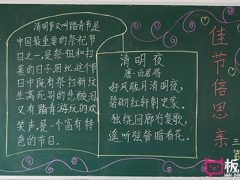 清明节又叫踏青节是
中国最重要的祭祀节
日之一,是祭祖和扫
墓的日子。所以这个节
日中既有祭扫新坟
生离死别的悲酸泪
又有踏青游玩的欢
笑声,是一个富有特
色的节日。
清明夜
唐·白居易
好风胧月清明夜,
碧砌红轩刺史家。
独绕回廊行复歇,
遥听弦管暗看花。
佳节倍思亲